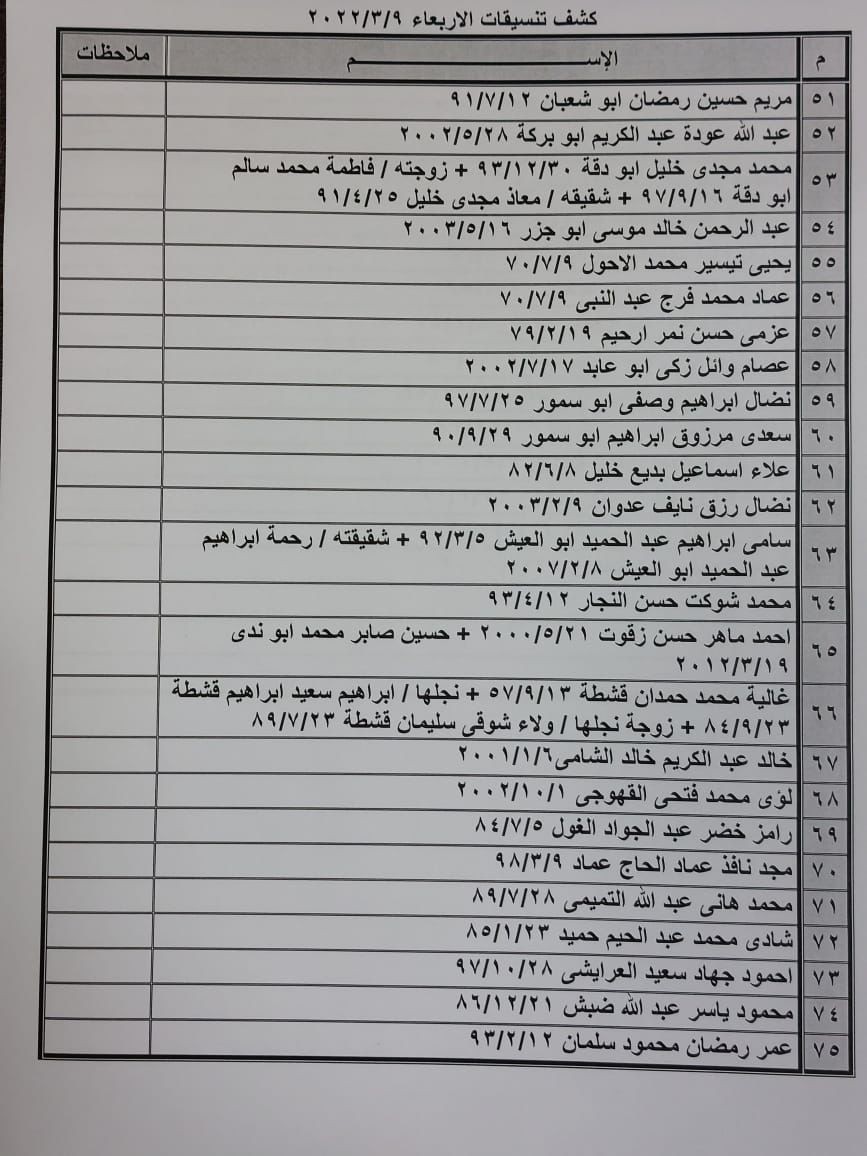 كشف تنسيقات الاربعاء ٢٠٢٢/٣/٩
م الإســـــــــــم ملاحظات
٥١ مريم حسين رمضان ابو شعبان ٩١/٧/١٢
٥٢ عبد الله عودة عبد الكريم ابو بركة ٢٠٠٢/٥/٢٨
٥٣ محمد مجدى خليل ابو دقة ٩٣/١٢/٣٠ + زوجته / فاطمة محمد سالم
ابو دقة ٩٧/٩/١٦ + شقيقه / معاذ مجدى خليل ٩١/٤/٢٥
٥٤ عبد الرحمن خالد موسى ابو جزر ٢٠٠٣/٥/١٦
٥٥ يحيى تيسير محمد الاحول ٧٠/٧/٩
٥٦ عماد محمد فرج عبد النبى ٧٠/٧/٩
٥٧ عزمى حسن نمر ارحيم ٧٩/٢/١٩
٥٨ عصام وائل زكى ابو عابد ٢٠٠٢/٧/١٧
٥٩ نضال ابراهيم وصفى ابو سمور ٩٧/٧/٢٥
٦٠ سعدى مرزوق ابراهيم ابو سمور ٩٠/٩/٢٩
٦١ علاء اسماعيل بديع خليل ٨٢/٦/٨
٦٢ نضال رزق نايف عدوان ٢٠٠٣/٢/٩
٦٣ سامى ابراهيم عبد الحميد ابو العيش ٩٢/٣/٥ + شقيقته / رحمة ابراهيم
عبد الحميد ابو العيش ٢٠٠٧/٢/٨
٦٤ محمد شوكت حسن النجار ٩٣/٤/١٢
٦٥ احمد ماهر حسن زقوت ٢٠٠٠/٥/٢١ + حسين صابر محمد ابو ندى
٢٠١٢/٣/١٩
٦٦ غالية محمد حمدان قشطة ٥٧/٩/١٣ + نجلها / ابراهيم سعيد ابراهيم قشطة
٨٤/٩/٢٣ + زوجة نجلها / ولاء شوقى سليمان قشطة ٨٩/٧/٢٣
٦٧ خالد عبد الكريم خالد الشامى٢٠٠١/١/٦
٦٨ لؤى محمد فتحى القهوجى ٢٠٠٢/١٠/١
٦٩ رامز خضر عبد الجواد الغول ٨٤/٧/٥
٧٠ مجد نافذ عماد الحاج عماد ٩٨/٣/٩
٧١ محمد هانى عبد الله التميمى ٨٩/٧/٢٨
٧٢ شادى محمد عبد الحيم حميد ٨٥/١/٢٣
٧٣ احمود جهاد سعيد العرايشى ٩٧/١٠/٢٨
٧٤ محمود ياسر عبد الله ضبش ٨٦/١٢/٢١
٧٥ عمر رمضان محمود سلمان ٩٣/٢/١٢